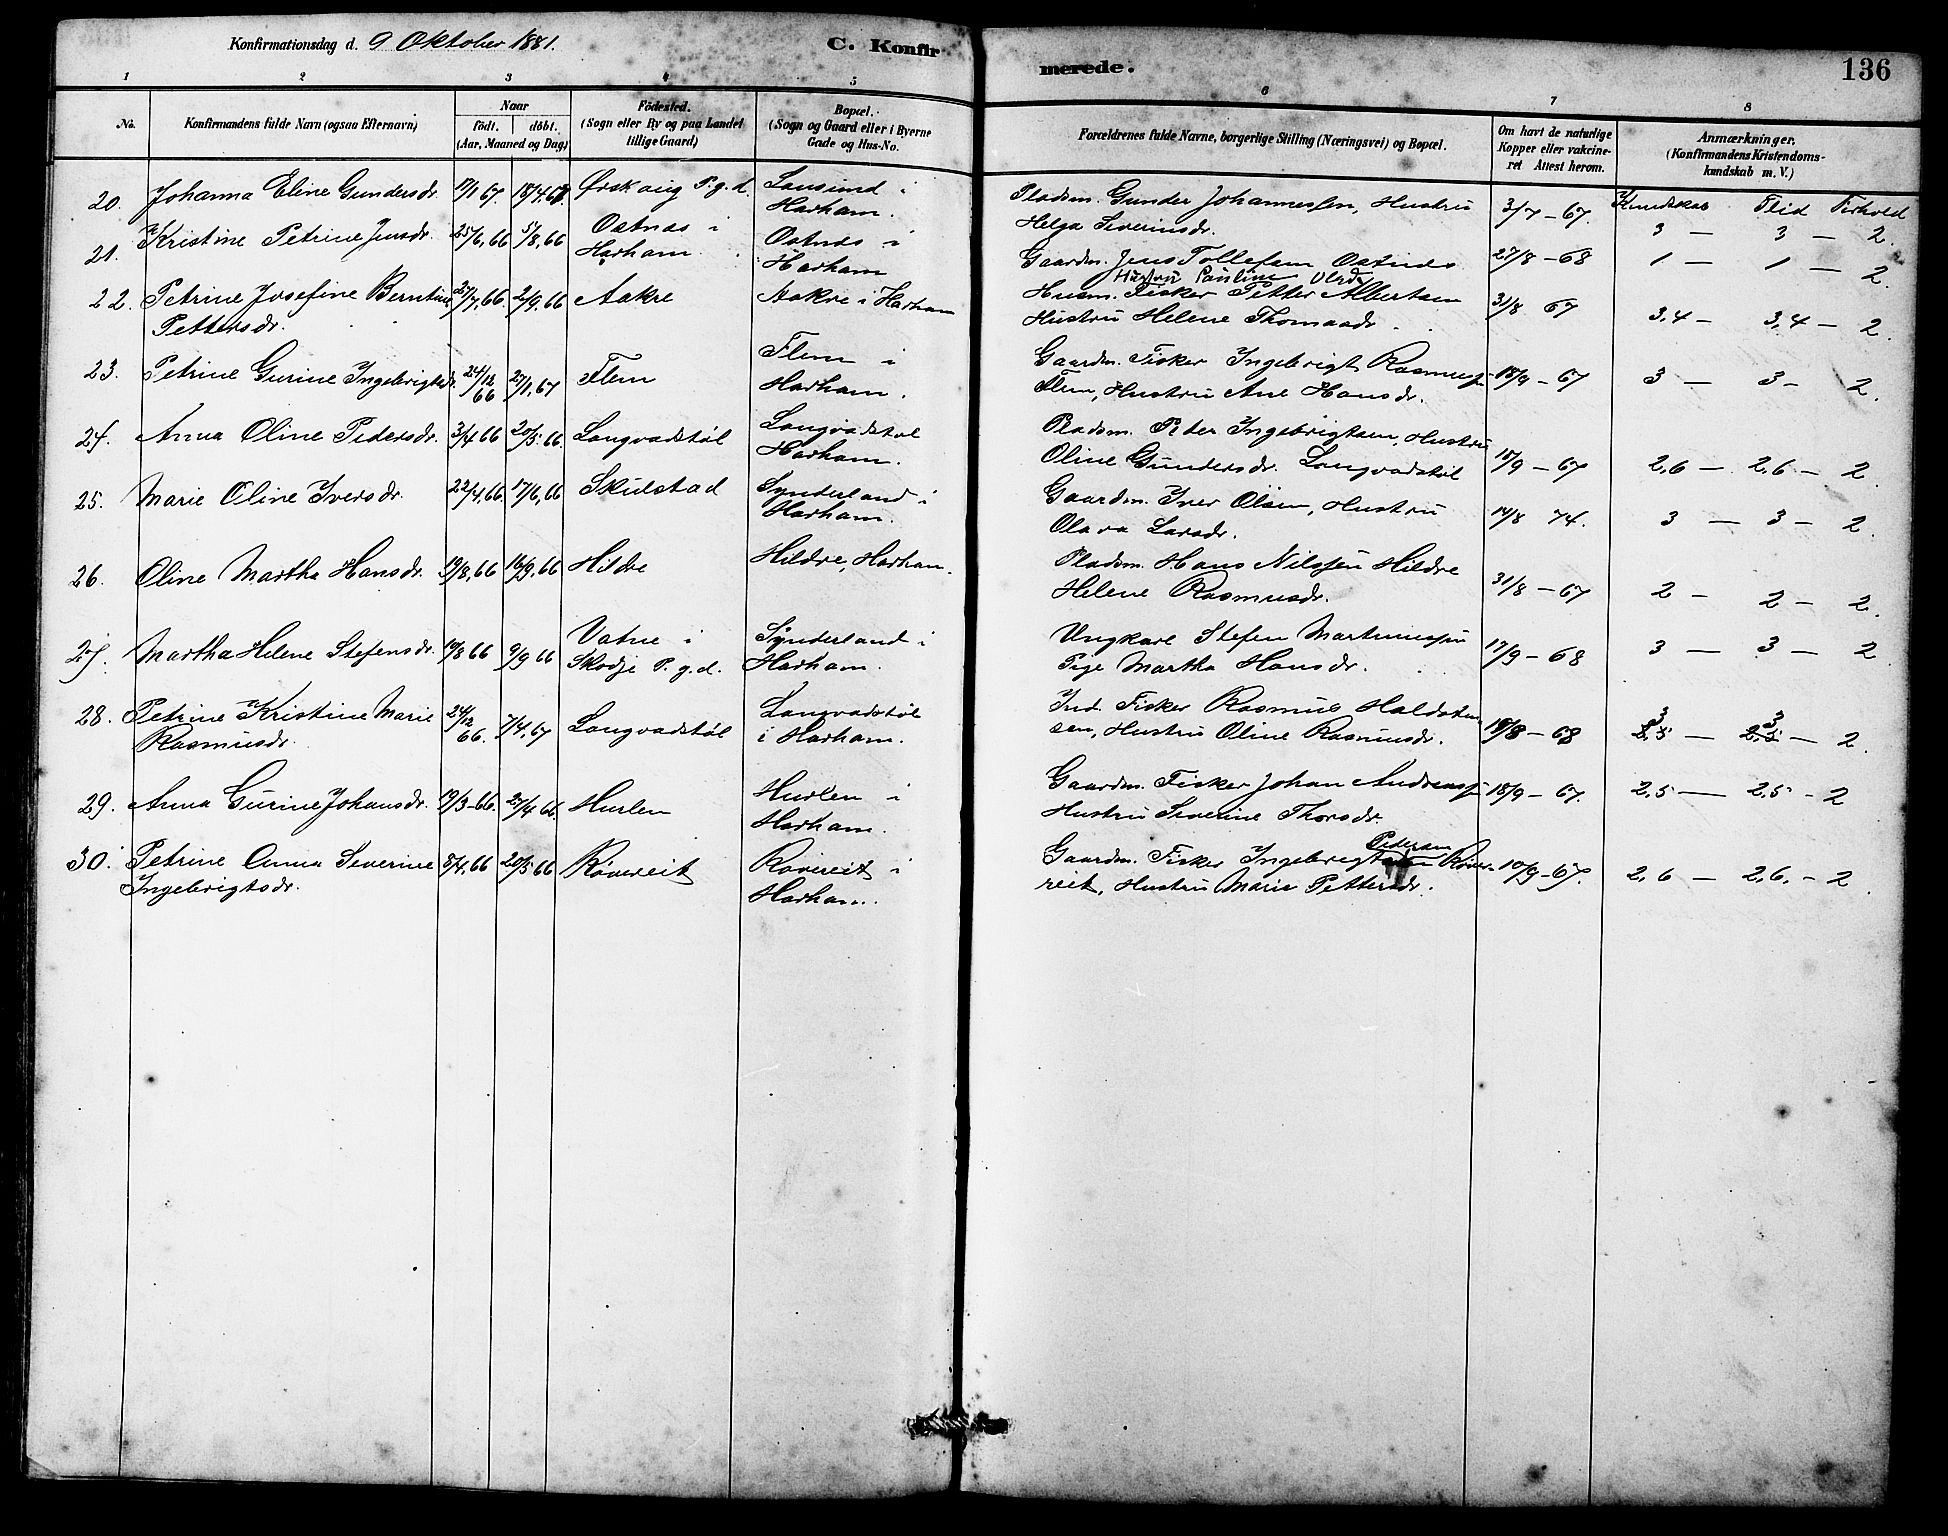 Konfirmationsdag d. 9 Oktober 1881.
C. Konfirmerede.
136
1 2 3 4 5 6 7 8
No.
Konfirmandens fulde Navn (ogsaa Efternavn)
Naar
födt. döbt.
(Aar, Maaned og Dag)
Födested.
(Sogn eller By og paa Landet
tillige Gaard)
Bopæl.
(Sogn og Gaard eller i Byerne
Gade og Hus-No.
Forældrenes fulde Navne, borgerlige Stilling (Næringsvei) og Bopæl.
Om havt de naturlige
Kopper eller vakcine-
ret Attest herom.
Anmærkninger.
(Konfirmandens Kristendoms-
kundskab m. V.)
Kundskab Flid Forhold
20. Johanna Eline Gundersdr. 17/1 67. 18/4.67 Ørskoug P.g.d. Longund i
Harham.
Pladsm. Gunder Johannessen, Hustru
Helga Severinsdr. 3/7 - 67. 3 — 3 — 2.
21. Kristine Petrine Jensdr. 25/6,66 5/8,66 Ostnæs i
Harham. Ostnæs i
Harham
Gaardm. Jens Tollefsen Ostnæs
Hustru Pauline Olsdr 27/8 - 68 1 — 1 — 2
22. Petrine Josefine Berntine
Pettersdr. 27/7,66 2/9,66 Aakre Aakre i Harham
Husm. Fisker Petter Albertsen
Hustru Helene Thomasdr. 31/8 67 3,4 — 3,4 — 2.
23. Petrine Gurine Ingebrigtsdr. 24/12 66 27/1,67 Flem Flem i
Harham.
Gaardm. Fisker Ingebrigt Rasmussen
Flem, Hustru Ane Hansdr. 18/9 - 67 3 — 3 - 2.
24. Anna Oline Pedersdr. 3/4 66 20/5 66 Longvadstøl Longvadstøl
Harham.
Pladsm. Peder Ingebrigtsen, Hustru
Oline Gundersdr. Longvadstøl 18/9 - 67 2,6 — 2,6 — 2.
25. Marie Oline Iversdr. 22/4,66 17/6,66 Skulstad Synderland i
Harham.
Gaardm. Iver Olsen, Hustru
Olava Larsdr. 14/8 74. 3 — 3 — 2.
26. Oline Martha Hansdr. 19/8,66 16/9,66 Hildre Hildre, Harham.
Pladsm. Hans Nilssen Hildre
Helene Rasmusdr. 31/8 - 67 2 — 2 — 2.
27. Martha Helene Stefensdr. 19/8 66 9/9 66 Vatne i
Skodje P.g.d. Synderland i
Harham.
Ungkarl Stefen Martinussen
Pige Martha Hansdr. 17/9 - 68 3 — 3 — 2
28. Petrine Kristine Marie
Rasmusdr. 24/12 66. 7/4,67 Longvadstøl Longvadstøl
i Harham.
Ind. Fisker Rasmus Haldsten-
sen, Hustru Oline Rasmusdr. 18/8 - 68 3 — 3 — 2.
29. Anna Gurine Johansdr. 19/3-66. 2/4 66 Hurlen Hurlen i
Harham.
Gaardm. Fisker Johan Andreassen
Hustru Severine Thorsdr. 18/9 - 67. 2,5 — 2,5 - 2
30. Petrine Anna Severine
Ingebrigtsdr. 8/4,66 20/5 66 Røvereit Røvereit i
Harham.
Gaardm. Fisker Ingebrigt Pedersen Røve-
reit, Hustru Marie Pettersdr. 10/9 - 67. 2,6 — 2,6. - 2